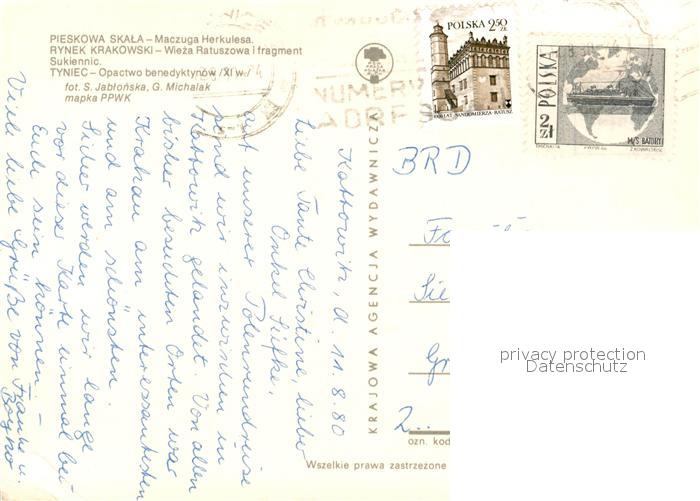 PIESKOWA SKAŁA – Maczuga Herkulesa.
RYNEK KRAKOWSKI – Wieża Ratuszowa i fragment
Sukiennic.
TYNIEC – Opactwo benedyktynów /XI w./
fot. S. Jabłońska, G. Michalak
mapka PPWK
NUMERY
ADRES
POLSKA 2.50 ZŁ
800 LAT SANDOMIERZA · RATUSZ
POLSKA
2 zł
M/S BATORY
KRAJOWA AGENCJA WYDAWNICZA
Kattowitz, d. 11.8.80
Liebe Tante Christine, lieber
Onkel Siefke,
auf unserer Polenrundreise
sind wir inzwischen in
Kattowitz gelandet. Von allen
bisher besuchten Orten war
Krakau am interessantesten
und am schönsten.
Sicher werden wir lange
vor dieser Karte einmal bei
Euch sein können. –
Viele liebe Grüße von Frauke u.
BRD
2..
ozn. kod
Wszelkie prawa zastrzeżone
privacy protection
Datenschutz